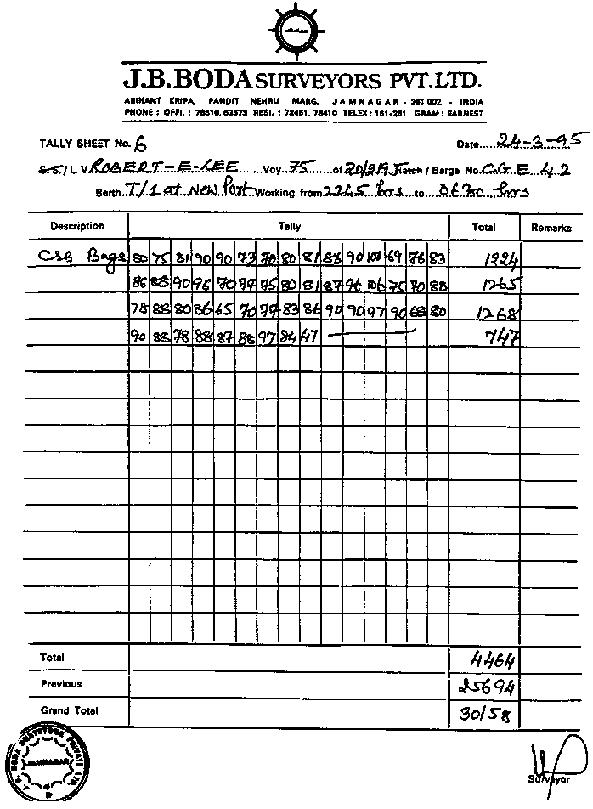 J.B.BODA SURVEYORS PVT.LTD.
ARIHANT KRIPA, PANDIT NEHRU MARG, JAMNAGAR - 361 002. - INDIA
TALLY SHEET No. 6 Date 24-3-95
S.S./L.V. ROBERT-E-LEE Voy 75 of Hatch / Barge No. C.G.E 42
Berth T/1 at New Port Working from 2245 hrs to hrs
Description Tally Total Remarks
Bags 80 75 81 90 90 73 70 80 81 85 90 101 69 76 83 1224
86 88 90 96 70 77 75 80 81 87 96 106 75 70 88 1265
78 88 80 86 65 70 79 83 86 90 90 97 90 68 80 1268
90 88 78 88 87 88 97 84 47 747
Total 4464
Previous 25694
Grand Total 30158
J. B. BODA SURVEYORS PRIVATE LTD.
JAMNAGAR
Surveyor